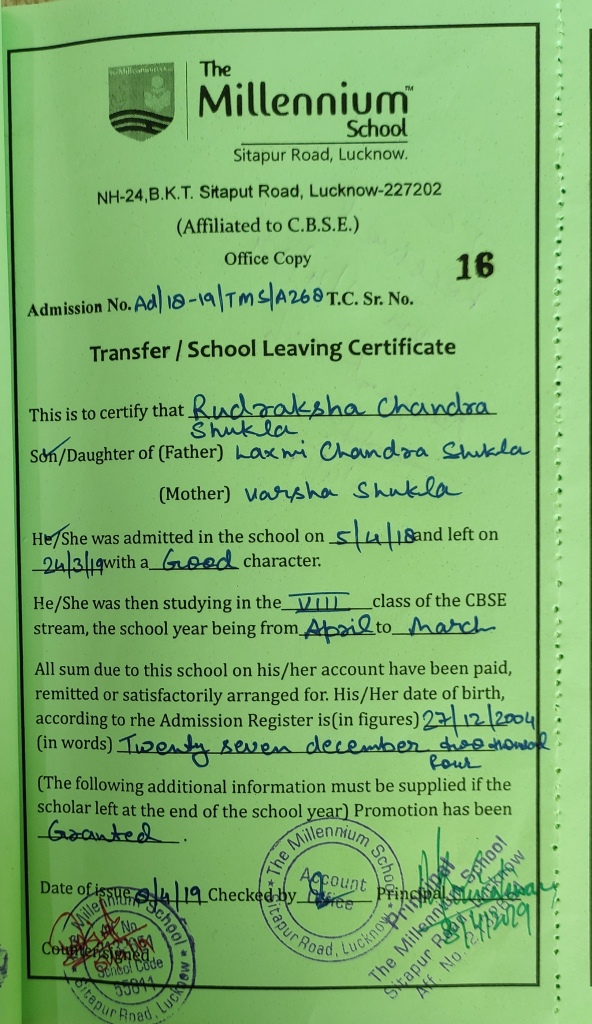 The
Millennium™
School
Sitapur Road, Lucknow.
NH-24,B.K.T. Sitaput Road, Lucknow-227202
(Affiliated to C.B.S.E.)
Office Copy
16
Admission No. Ad/18-19/TMS/A268 T.C. Sr. No.
Transfer / School Leaving Certificate
This is to certify that Rudraksha Chandra
Shukla
Son/Daughter of (Father) Laxmi Chandra Shukla
(Mother) Varsha Shukla
He/She was admitted in the school on 5/4/18 and left on
24/3/19 with a Good character.
He/She was then studying in the VIII class of the CBSE
stream, the school year being from April to March
All sum due to this school on his/her account have been paid,
remitted or satisfactorily arranged for. His/Her date of birth,
according to rhe Admission Register is(in figures) 27/12/2004
(in words) Twenty seven december two thousand
four
(The following additional information must be supplied if the
scholar left at the end of the school year) Promotion has been
Granted.
Date of issue 8/4/19 Checked by Principal
The Millennium School
Account
Office
Sitapur Road, Lucknow
Principal
The Millennium School
Sitapur Road, Lucknow
Aff. No.
8/4/2019
Countersigned
Millennium School
School Code
Sitapur Road, Lucknow